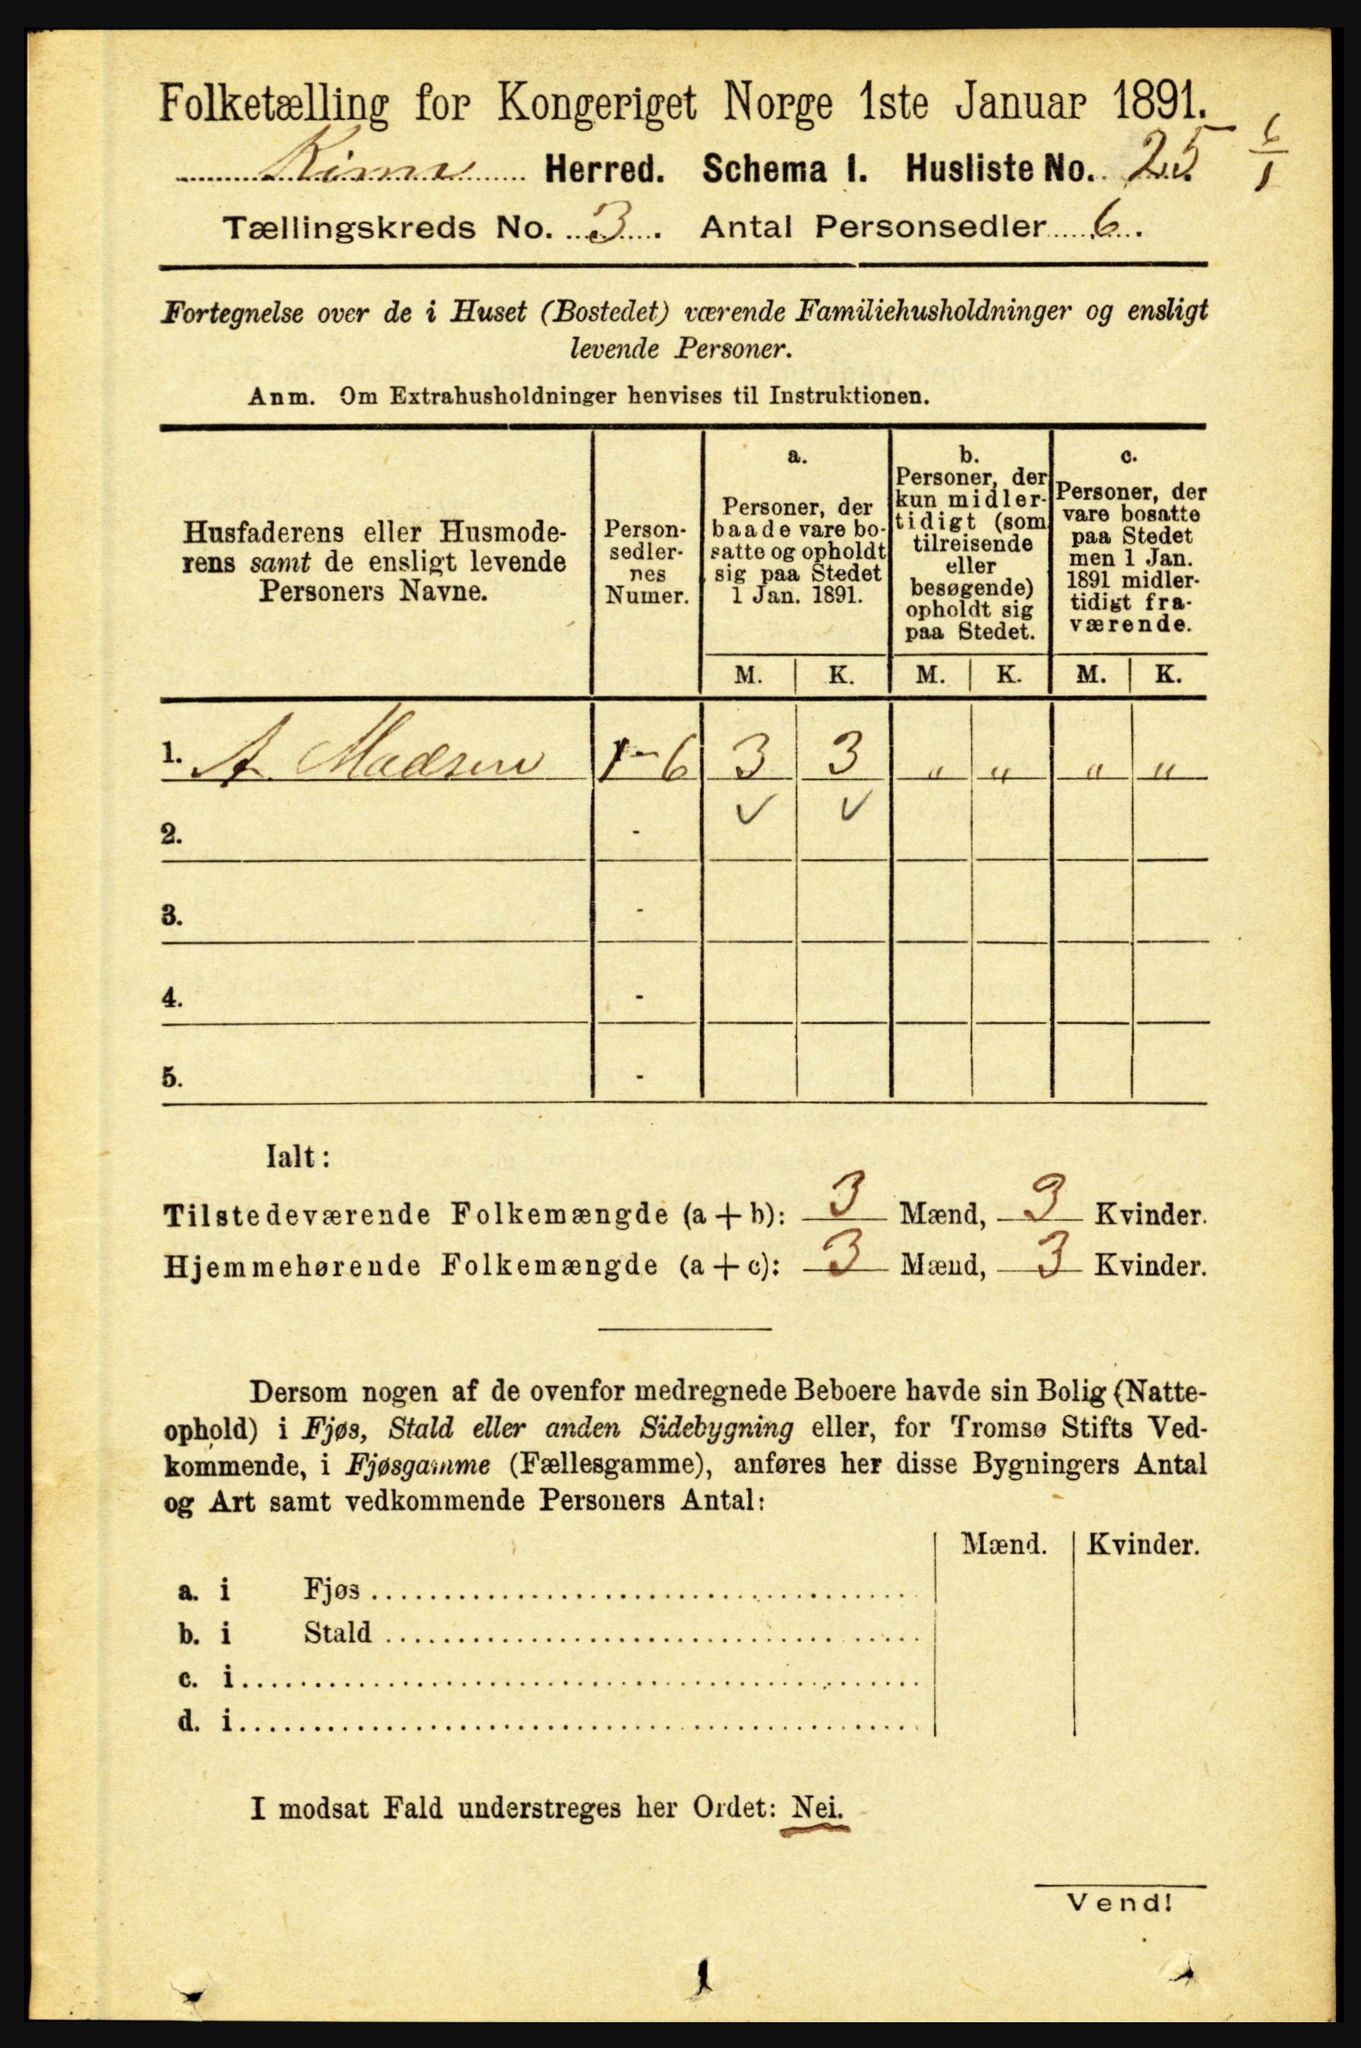 Folketælling for Kongeriget Norge 1ste Januar 1891.
Kinn Herred. Schema I. Husliste No. 25 6/1
Tællingskreds No. 3. Antal Personsedler 6.
Fortegnelse over de i Huset (Bostedet) værende Familiehusholdninger og ensligt
levende Personer.
Anm. Om Extrahusholdninger henvises til Instruktionen.
Husfaderens eller Husmode-
rens samt de ensligt levende
Personers Navne.
Person-
sedler-
nes
Numer.
a.
Personer, der
baade vare bo-
satte og opholdt
sig paa Stedet
1 Jan. 1891.
b.
Personer, der
kun midler-
tidigt (som
tilreisende
eller
besøgende)
opholdt sig
paa Stedet.
c.
Personer, der
vare bosatte
paa Stedet
men 1 Jan.
1891 midler-
tidigt fra-
værende.
M. K. M. K. M. K.
1. A. Madsen 1-6 3 3 " " " "
2. - ✓ ✓
3. -
4. -
5. -
Ialt:
Tilstedeværende Folkemængde (a+b): 3 Mænd, 3 Kvinder.
Hjemmehørende Folkemængde (a+c): 3 Mænd, 3 Kvinder.
Dersom nogen af de ovenfor medregnede Beboere havde sin Bolig (Natte-
ophold) i Fjøs, Stald eller anden Sidebygning eller, for Tromsø Stifts Ved-
kommende, i Fjøsgamme (Fællesgamme), anføres her disse Bygningers Antal
og Art samt vedkommende Personers Antal:
Mænd. Kvinder.
a. i Fjøs
b. i Stald
c. i
d. i
I modsat Fald understreges her Ordet: Nei.
Vend!